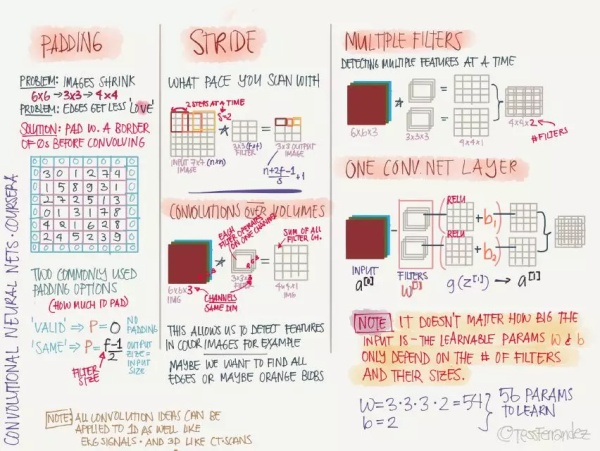 CONVOLUTIONAL NEURAL NETS: COURSERA
PADDING
PROBLEM: IMAGES SHRINK
6x6 → 3x3 → 4x4
PROBLEM: EDGES GET LESS 'LOVE'
SOLUTION: PAD W. A BORDER
OF 0s BEFORE CONVOLVING
0 0 0 0 0 0 0 0
0 3 0 1 2 7 4 0
0 1 5 8 9 3 1 0
0 2 7 2 5 1 3 0
0 0 1 3 1 7 8 0
0 4 2 1 6 2 8 0
0 2 4 5 2 3 9 0
0 0 0 0 0 0 0 0
TWO COMMONLY USED
PADDING OPTIONS
(HOW MUCH TO PAD)
'VALID' ⇒ P = 0 NO PADDING
'SAME' ⇒ P = f-1/2 OUTPUT SIZE = INPUT SIZE
FILTER SIZE
NOTE: ALL CONVOLUTION IDEAS CAN BE
APPLIED TO 1D AS WELL LIKE
EKG SIGNALS - AND 3D LIKE CT-SCANS
STRIDE
WHAT PACE YOU SCAN WITH
2 STEPS AT A TIME
S=2
* =
INPUT 7x7 (nxn)
IMAGE
3x3 (fxf)
FILTER
3x3 OUTPUT
IMAGE
+1
CONVOLUTIONS OVER VOLUMES
EACH
FILTER OPERATES
ON ONE CHANNEL
SUM OF ALL
FILTER CH.
* =
6x6x3
IMG
3x3x3
FILTER
4x4x1
IMG
CHANNELS
SAME DIM
THIS ALLOWS US TO DETECT FEATURES
IN COLOR IMAGES FOR EXAMPLE
MAYBE WE WANT TO FIND ALL
EDGES OR MAYBE ORANGE BLOBS
MULTIPLE FILTERS
DETECTING MULTIPLE FEATURES AT A TIME
* =
* =
6x6x3
3x3x3
4x4x1
4x4x2
#FILTERS
ONE CONV. NET LAYER
RELU
+ b₁
RELU
+ b₂
INPUT
FILTERS
NOTE IT DOESN'T MATTER HOW BIG THE
INPUT IS - THE LEARNABLE PARAMS W & b
ONLY DEPEND ON THE # OF FILTERS
AND THEIR SIZES.
W = 3·3·3·2 = 54
b = 2
56 PARAMS
TO LEARN
@TESSFERRANDEZ